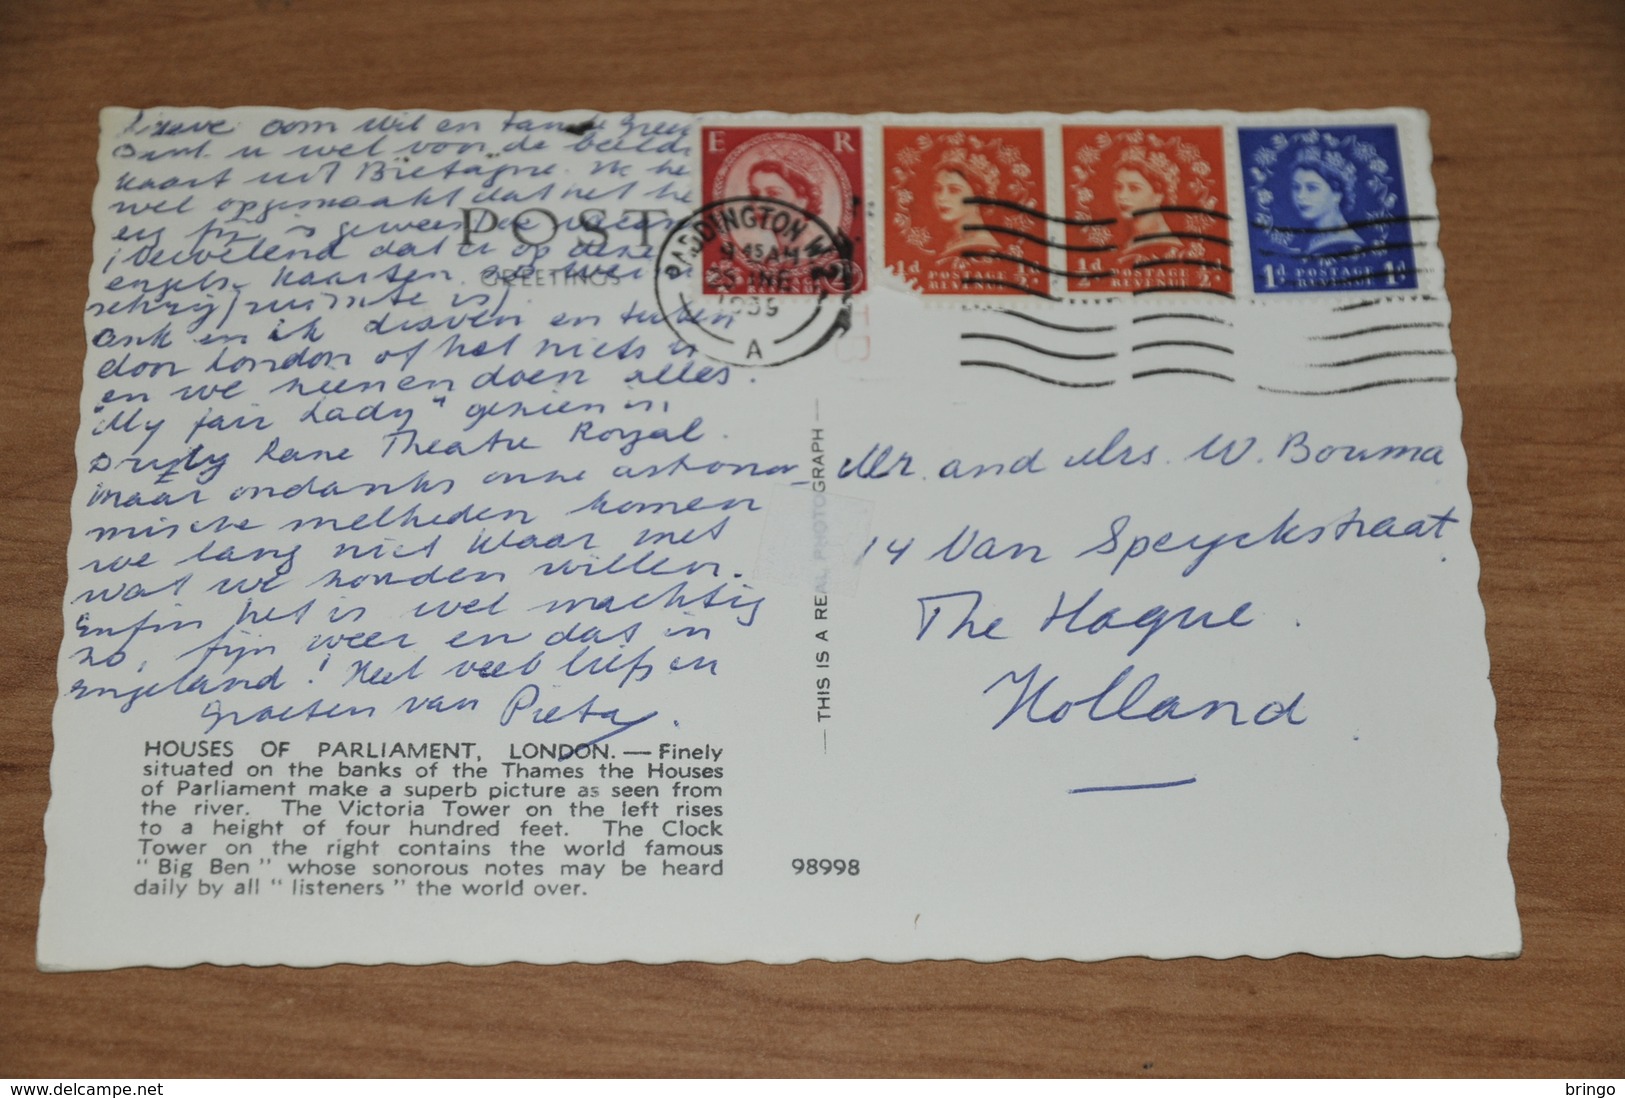 Lieve oom Wil en tante Gree
Dank u wel voor de beeld
kaart uit Bretagne. Ik he
wel opgemaakt dat het he
erg fijn is geweest
(Vervelend dat u op deze
engelse kaarten zo weinig
schrijfruimte is).
Ank en ik draven en
door London of het niets is
en we zien en doen alles.
"My fair Lady" gezien in
Drury Lane Theatre Royal.
Maar ondanks onze astrono-
mische melheden komen
we lang niet klaar met
wat we zouden willen.
Enfin het is wel machtig
zo, fijn weer en dat in
Engeland! Heel veel liefs en
groeten van Pieta.
POST
GREETINGS
E R
PADDINGTON W.2
9 45 AM
25 JNE
1959
A
½d POSTAGE ½d
REVENUE
½d POSTAGE ½d
REVENUE
1d POSTAGE 1d
REVENUE
Mr. and Mrs. W. Bouma
14 Van Speyckstraat
The Hague.
Holland
THIS IS A REAL PHOTOGRAPH
HOUSES OF PARLIAMENT, LONDON. — Finely
situated on the banks of the Thames the Houses
of Parliament make a superb picture as seen from
the river. The Victoria Tower on the left rises
to a height of four hundred feet. The Clock
Tower on the right contains the world famous
"Big Ben" whose sonorous notes may be heard
daily by all "listeners" the world over.
98998
www.delcampe.net
bringo